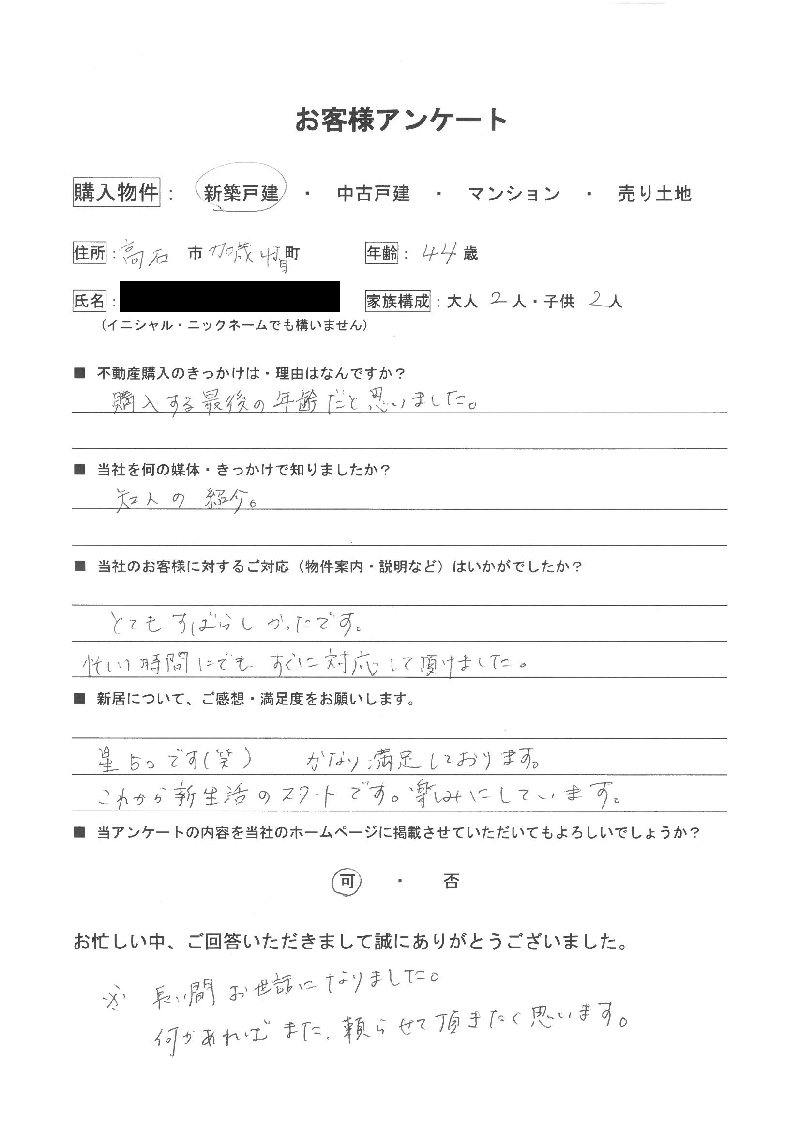 お客様アンケート
購入物件： 新築戸建 ・ 中古戸建 ・ マンション ・ 売り土地
住所：高石 市 加茂 町 年齢：44歳
氏名： 家族構成：大人 2人・子供 2人
（イニシャル・ニックネームでも構いません）
■ 不動産購入のきっかけは・理由はなんですか？
購入する最後の年齢だと思いました。
■ 当社を何の媒体・きっかけで知りましたか？
知人の紹介。
■ 当社のお客様に対するご対応（物件案内・説明など）はいかがでしたか？
とてもすばらしかったです。
忙しい時間にでもすぐに対応して頂けました。
■ 新居について、ご感想・満足度をお願いします。
星5つです(笑) かなり満足しております。
これから新生活のスタートです。楽しみにしています。
■ 当アンケートの内容を当社のホームページに掲載させていただいてもよろしいでしょうか？
可 ・ 否
お忙しい中、ご回答いただきまして誠にありがとうございました。
※ 長い間お世話になりました。
何かあればまた、頼らせて頂きたく思います。